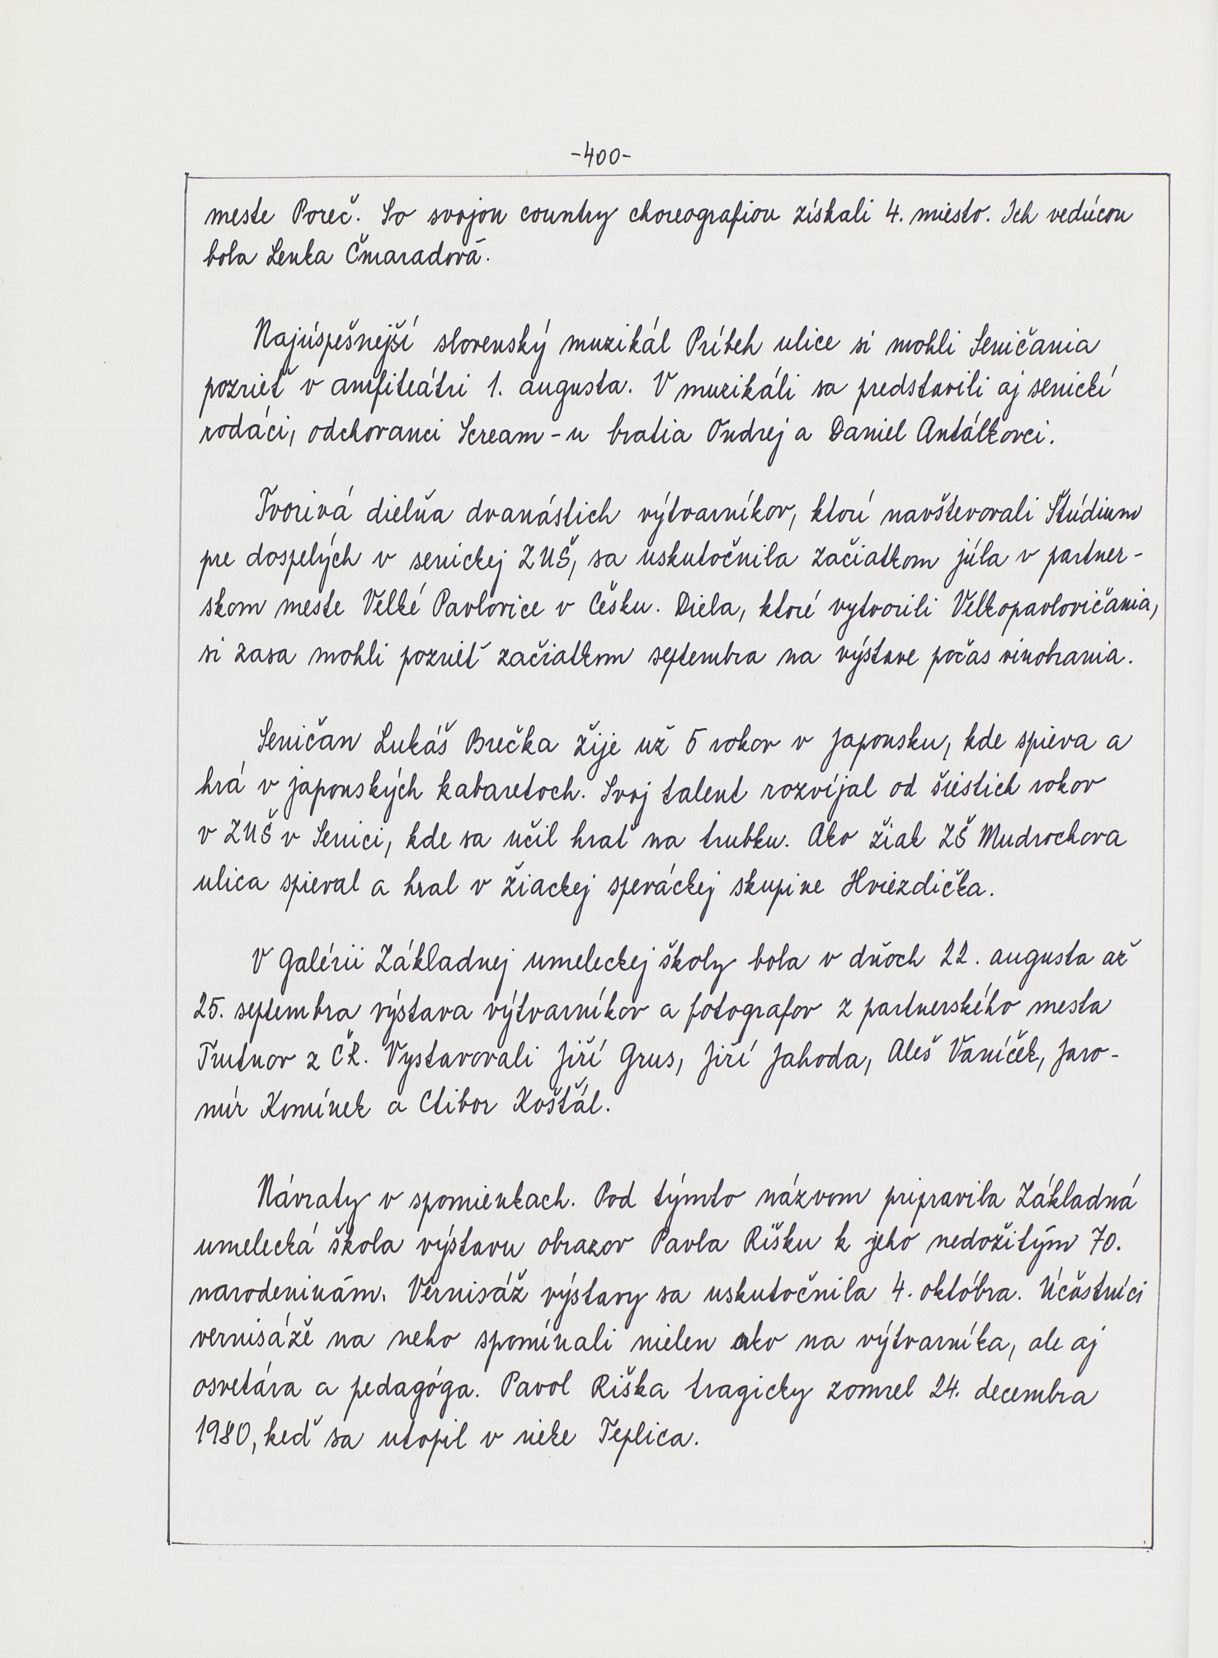 -400-
meste Poreč. So svojou country choreografiou získali 4. miesto. Ich vedúcou
bola Lenka Čmaradová.
Najúspešnejší slovenský muzikál Príbeh ulice si mohli Seničania
pozrieť v amfiteátri 1. augusta. V muzikáli sa predstavili aj senickí
rodáci, odchovanci Scream-u bratia Ondrej a Daniel Antálkovci.
Tvorivá dielňa dvanástich výtvarníkov, ktorí navštevovali Štúdium
pre dospelých v senickej ZUŠ, sa uskutočnila začiatkom júla v partner-
skom meste Velké Pavlovice v Česku. Diela, ktoré vytvorili Velkopavlovičania,
si zasa mohli pozrieť začiatkom septembra na výstave počas vinobrania.
Seničan Lukáš Brečka žije už 5 rokov v Japonsku, kde spieva a
hrá v japonských kabaretoch. Svoj talent rozvíjal od šiestich rokov
v ZUŠ v Senici, kde sa učil hrať na trubku. Ako žiak ZŠ Mudrochova
ulica spieval a hral v žiackej speváckej skupine Hviezdička.
V Galérii Základnej umeleckej školy bola v dňoch 22. augusta až
25. septembra výstava výtvarníkov a fotografov z partnerského mesta
Trutnov z ČR. Vystavovali Jiří Grus, Jiří Jahoda, Aleš Vaníček, Jaro-
mír Komínek a Ctibor Košťál.
Návraty v spomienkach. Pod týmto názvom pripravila Základná
umelecká škola výstavu obrazov Pavla Rišku k jeho nedožitým 70.
narodeninám. Vernisáž výstavy sa uskutočnila 4. októbra. Účastníci
vernisáže na neho spomínali nielen ako na výtvarníka, ale aj
osvetára a pedagóga. Pavol Riška tragicky zomrel 24. decembra
1980, keď sa utopil v rieke Teplica.